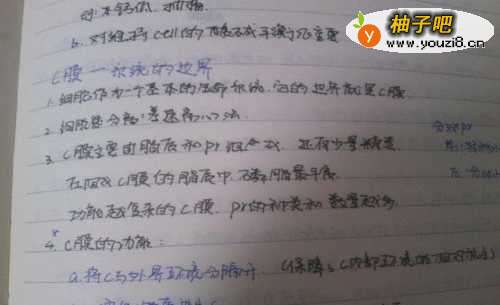 b. 对维持cell的酸碱平衡非常重要
柚子吧
www.youzi8.cn
C膜—系统的边界
1. 细胞作为一个基本的生命系统,它的边界就是C膜.
2. 细胞器分离:差速离心法
3. C膜主要由脂质和pr组成. 还有少量糖类.
在组成C膜的脂质中.磷脂最丰富.
功能越复杂的C膜. pr的种类和数量越多.
4. C膜的功能:
a. 将C与外界环境分隔开. (保障了C内部环境的相对稳定)